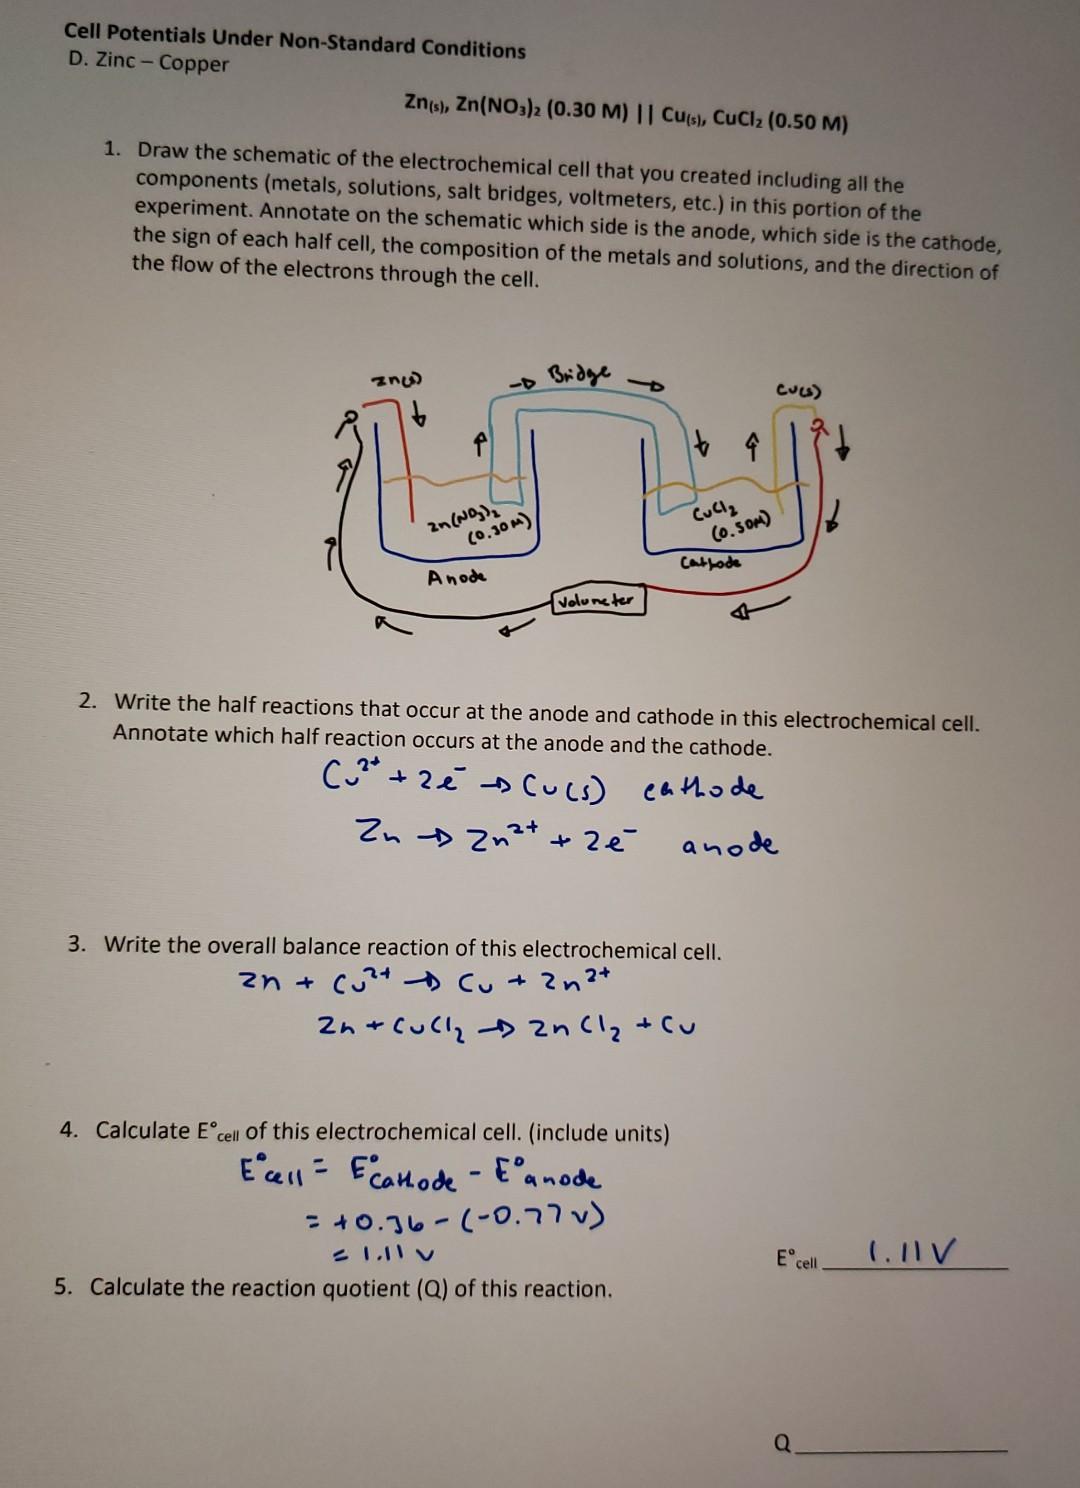 Cell Potentials Under Non-Standard Conditions
D. Zinc – Copper
Zn(s), Zn(NO₃)₂ (0.30 M) || Cu(s), CuCl₂ (0.50 M)
1. Draw the schematic of the electrochemical cell that you created including all the
components (metals, solutions, salt bridges, voltmeters, etc.) in this portion of the
experiment. Annotate on the schematic which side is the anode, which side is the cathode,
the sign of each half cell, the composition of the metals and solutions, and the direction of
the flow of the electrons through the cell.
Zn(s)
→ Bridge →
Cu(s)
Zn(NO₃)₂
(0.30M)
CuCl₂
(0.50M)
Anode
Cathode
Volumeter
2. Write the half reactions that occur at the anode and cathode in this electrochemical cell.
Annotate which half reaction occurs at the anode and the cathode.
Cu²⁺ + 2e⁻ → Cu(s) cathode
Zn → Zn²⁺ + 2e⁻ anode
3. Write the overall balance reaction of this electrochemical cell.
Zn + Cu²⁺ → Cu + Zn²⁺
Zn + CuCl₂ → ZnCl₂ + Cu
4. Calculate E°cell of this electrochemical cell. (include units)
E°cell = E°cathode - E°anode
= +0.36 - (-0.77 v)
= 1.11 v
E°cell 1.11 V
5. Calculate the reaction quotient (Q) of this reaction.
Q